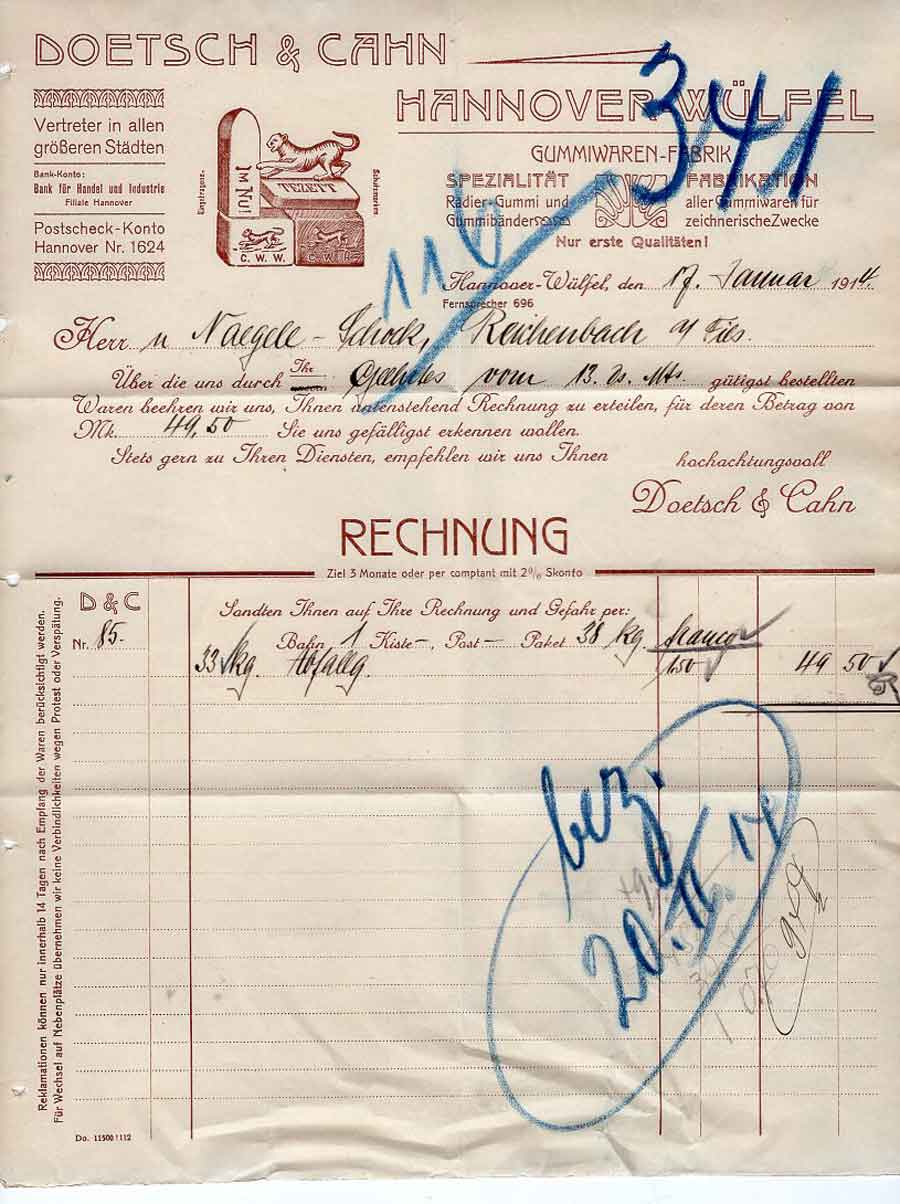 DOETSCH & CAHN
HANNOVER-WÜLFEL
341
Vertreter in allen
größeren Städten
Bank-Konto:
Bank für Handel und Industrie
Filiale Hannover
Postscheck-Konto
Hannover Nr. 1624
Eingetragene
IM NU!
TEZETT
C. W. W.
Schutzmarken
GUMMIWAREN-FABRIK
SPEZIALITÄT
Radier-Gummi und
Gummibänder
FABRIKATION
aller Gummiwaren für
zeichnerische Zwecke
Nur erste Qualitäten!
116
Hannover-Wülfel, den 17. Januar 1914.
Fernsprecher 696
Herrn Naegele-Schock, Reichenbach a/ Fils.
Über die uns durch Ihr Geehrtes vom 13. ds. Mts. gütigst bestellten
Waren beehren wir uns, Ihnen untenstehend Rechnung zu erteilen, für deren Betrag von
Mk. 49,50 Sie uns gefälligst erkennen wollen.
Stets gern zu Ihren Diensten, empfehlen wir uns Ihnen hochachtungsvoll
Doetsch & Cahn
RECHNUNG
Ziel 3 Monate oder per comptant mit 2% Skonto
D & C
Nr. 85.
Sandten Ihnen auf Ihre Rechnung und Gefahr per:
Bahn 1 Kiste-, Post- Paket 38 kg. franco
33 kg. Abfallg. 1.50 49 50
bez.
20. II. 14
Reklamationen können nur innerhalb 14 Tagen nach Empfang der Waren berücksichtigt werden.
Für Wechsel auf Nebenplätze übernehmen wir keine Verbindlichkeiten wegen Protest oder Verspätung.
Do. 11500 1112